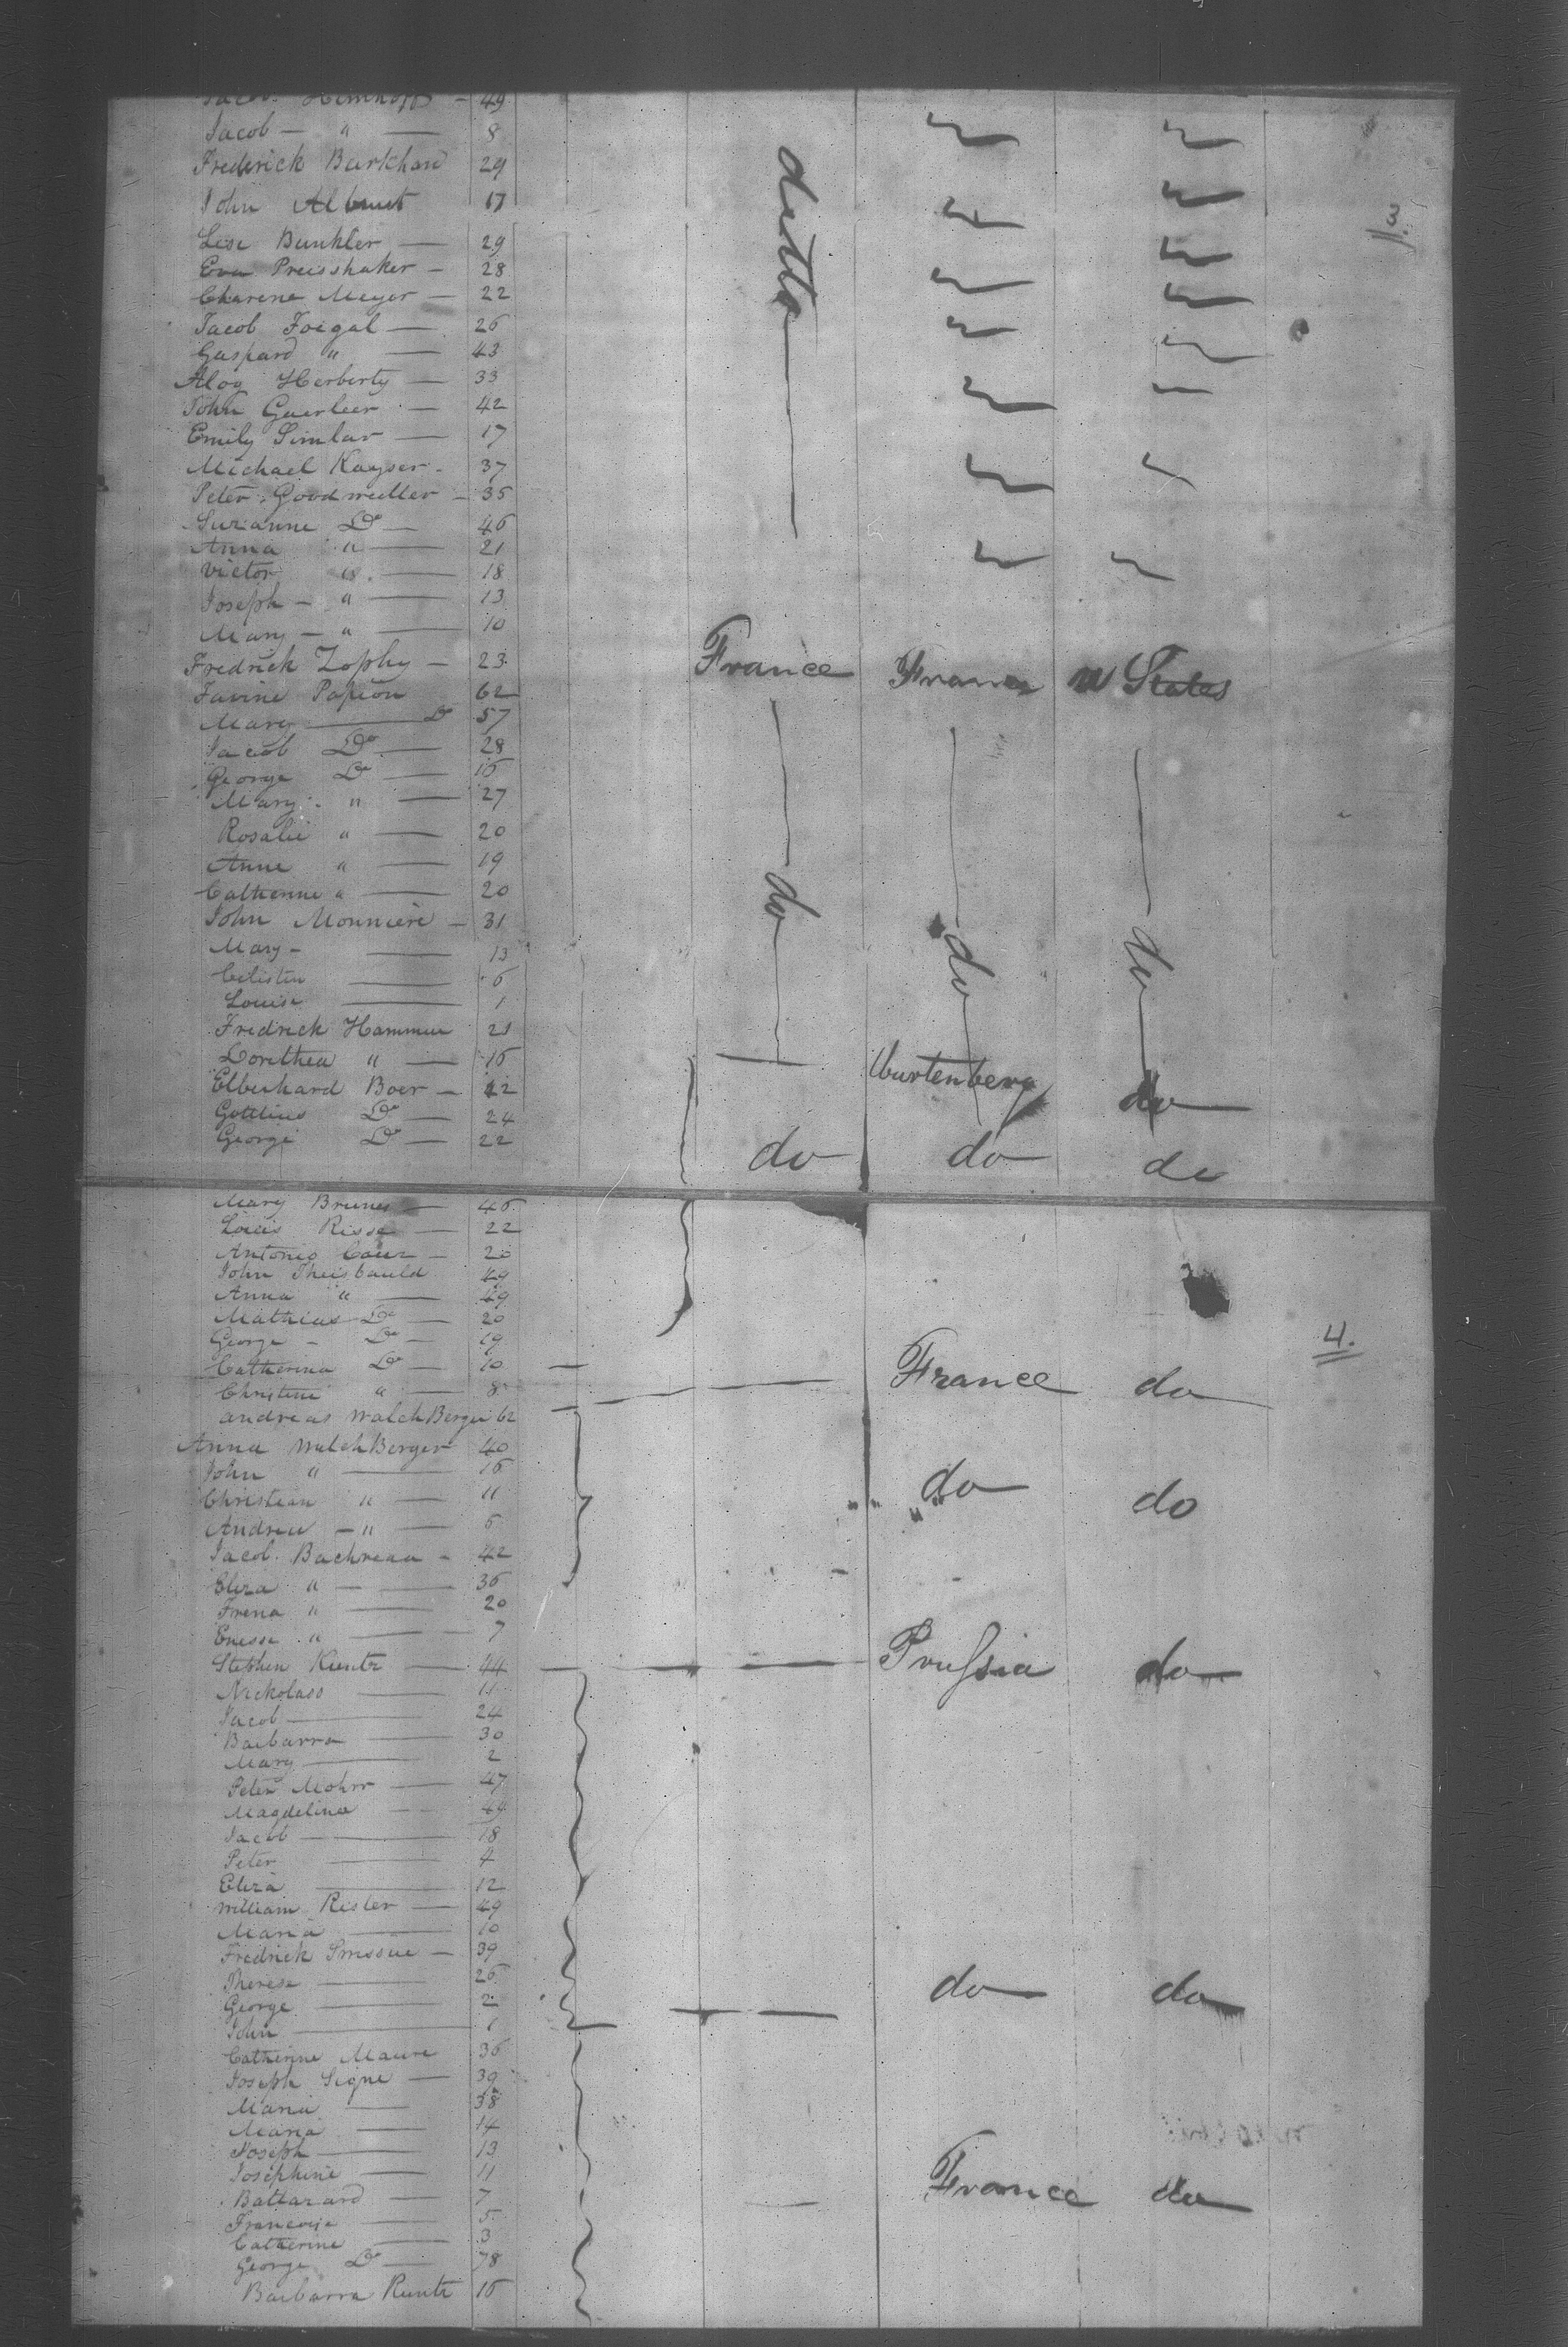 Jacob Heimhoff - 49
Jacob - " - 8
Frederick Burkhard 29
ditto
John Albrust 17
3.
Lise Bunkler - 29
Eva Preisshaker - 28
Charene Meyer - 22
Jacob Foegal - 26
Gaspard " - 43
Aloy Herberty - 33
John Guerleer - 42
Emily Simlar - 17
Michael Kayser - 37
Peter Goodmeller - 35
Suzanne Do - 46
Anna " - 21
Victor " - 18
Joseph - " - 13
Mary - " - 10
Fredrick Zophy - 23 France France U States
Favine Papion 62
Mary - Do 57
Jacob Do - 28
George Do - 16
Mary " - 27
Rosalie " - 20
Anne " - 19
Catherine " - 20
do
John Monniere - 31
do do
Mary - 13
Celistin - 6
Louise - 1
Fredrick Hammer 21
Dorethea " - 16
Elberhard Boer - 42 Wurtenberg do
Gottlieb Do - 24
George Do - 22 do do do
Mary Brunes - 46
Louis Risse - 22
Antonio - 20
John Theisbauld 49
Anna " - 49
Mathias Do - 20
George - Do - 19
4.
Catherina Do - 10 France do
Christine " - 8
Andreas WalchBerger 62
Anna WalchBerger 40
John " - 16
Christian " - 11 do do
Andrew - " - 6
Jacob Bachreau - 42
Eliza " - 36
Frena " - 20
" - 7
Stephen Kuntz - 44 Prussia do
Nickolass - 11
Jacob - 24
Barbarra - 30
Mary - 2
Peter Mohrr - 47
Magdelina - 44
Jacob - 18
Peter - 4
Eliza - 12
William Rister - 49
Maria - 10
Fredrick - 39
Therese - 26 do do
George - 2
John - 1
Catherine Maure 36
Joseph Signe - 39
Maria - 38
Maria - 14
Joseph - 13
Josephine - 11 France do
Battazard - 7
Francoise - 5
Catherine - 3
George Do - 78
Barbarra Runtz 16